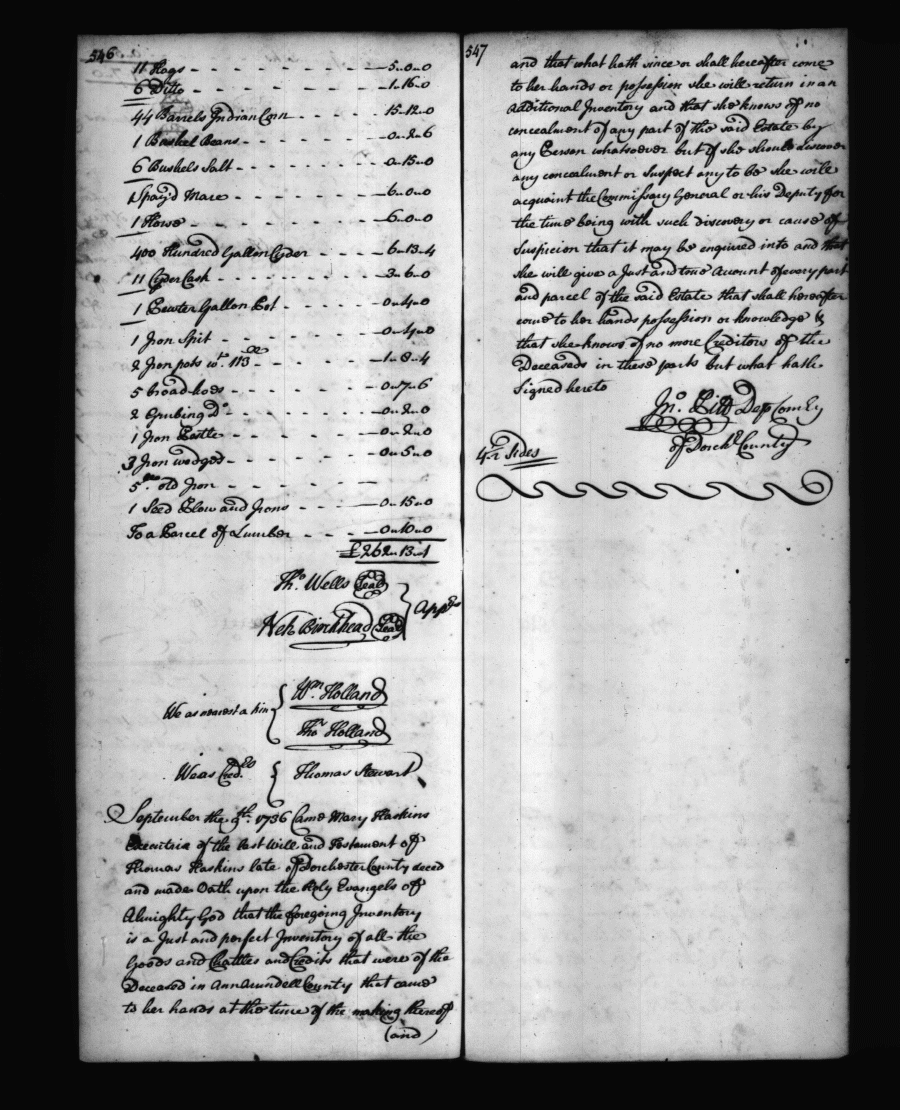 546
11 Hogs - - - - - - - - 5-0-0
6 Ditto - - - - - - - - 1-16-0
44 Barrels Indian Corn - - - - 15-12-0
1 Bushel Beans - - - - - - 0-2-6
6 Bushels Salt - - - - - - 0-15-0
1 Spay'd Mare - - - - - - 6-0-0
1 Horse - - - - - - - - 6-0-0
400 Hundred Gallon Cyder - - - - 6-13-4
11 Cyder Cask - - - - - - 3-6-0
1 Pewter Gallon Pot - - - - 0-4-0
1 Iron Spit - - - - - - 0-4-0
2 Iron pots wt. 113 - - - - 1-8-4
5 broad hoes - - - - - - 0-7-6
2 Grubing Do - - - - - - 0-2-0
1 Iron Pestle - - - - - - 0-2-0
3 Iron wedges - - - - - - 0-5-0
5 old Iron - - - - - -
1 Seed Plow and Irons - - - - 0-15-0
To a Parcel of Lumber - - - - 0-10-0
£262-13-1
Tho. Wells Seal
Neh Birckhead Seal
Apprs
We as nearest a kin
Wm Holland
Thos Holland
We as Credrs
Thomas Stewart
September the 9th. 1736 Came Mary Haskins
Executrix of the last Will and Testament of
Thomas Haskins late of Dorchester County deced
and made Oath upon the Holy Evangels of
Almighty God that the foregoing Inventory
is a Just and perfect Inventory of all the
Goods and Chattles and Credits that were of the
Deceased in Ann Arundell County that came
to her hands at the time of the making thereof
(and)
547
and that what hath since or shall hereafter come
to her hands or possession she will return in an
Additional Inventory and that she knows of no
concealment of any part of the said Estate by
any Person whatsoever but if she should discover
any concealment or Suspect any to be she will
acquaint the Commissary General or his Deputy for
the time being with such discovery or cause of
Suspicion that it may be enquired into and that
she will give a Just and true Amount of every part
and parcel of the said Estate that shall hereafter
come to her hands possession or knowledge &
that she knows of no more Creditors of the
Deceaseds in these parts but what hath
Signed hereto
Jno. Pitt Dep Com Ey
of Dorchr County
4 Sides